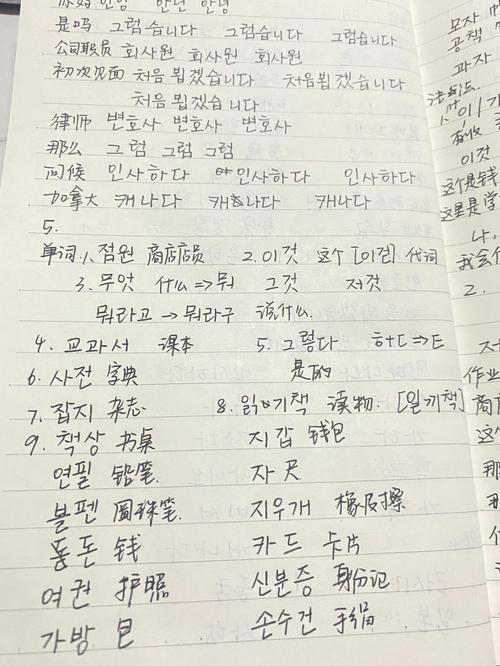 안녕 안녕
是吗 그럼습니다 그럼습니다 그럼습니다
公司职员 회사원 회사원 회사원
初次见面 처음 뵙겠습니다 처음뵙겠습니다
처음뵙겠습니다
律师 변호사 변호사 변호사
那么 그럼 그럼 그럼
问候 인사하다 인사하다 인사하다
加拿大 캐나다 캐나다 캐나다
5.
单词 1、점원 商店店员 2.이것 这个 [이걷] 代词
3.무엇 什么⇒뭐 그것 저것
뭐라고→뭐라구 说什么.
4. 교과서 课本 5.그렇다 ㅎ+ㄷ⇒ㅌ
是的
6. 사전 字典
7. 잡지 杂志 8.읽기책 读物. [일끼책]
9. 책상 书桌 지갑 钱包
연필 铅笔 자 尺
볼펜 圆珠笔 지우개 橡皮擦
돈 钱 카드 卡片
여권 护照 신분증 身份证
가방 包 손수건 手绢
모자
공책
과자
이것
这个是钱
这里是学
나,
我会
2.
作业
商店
这个
那